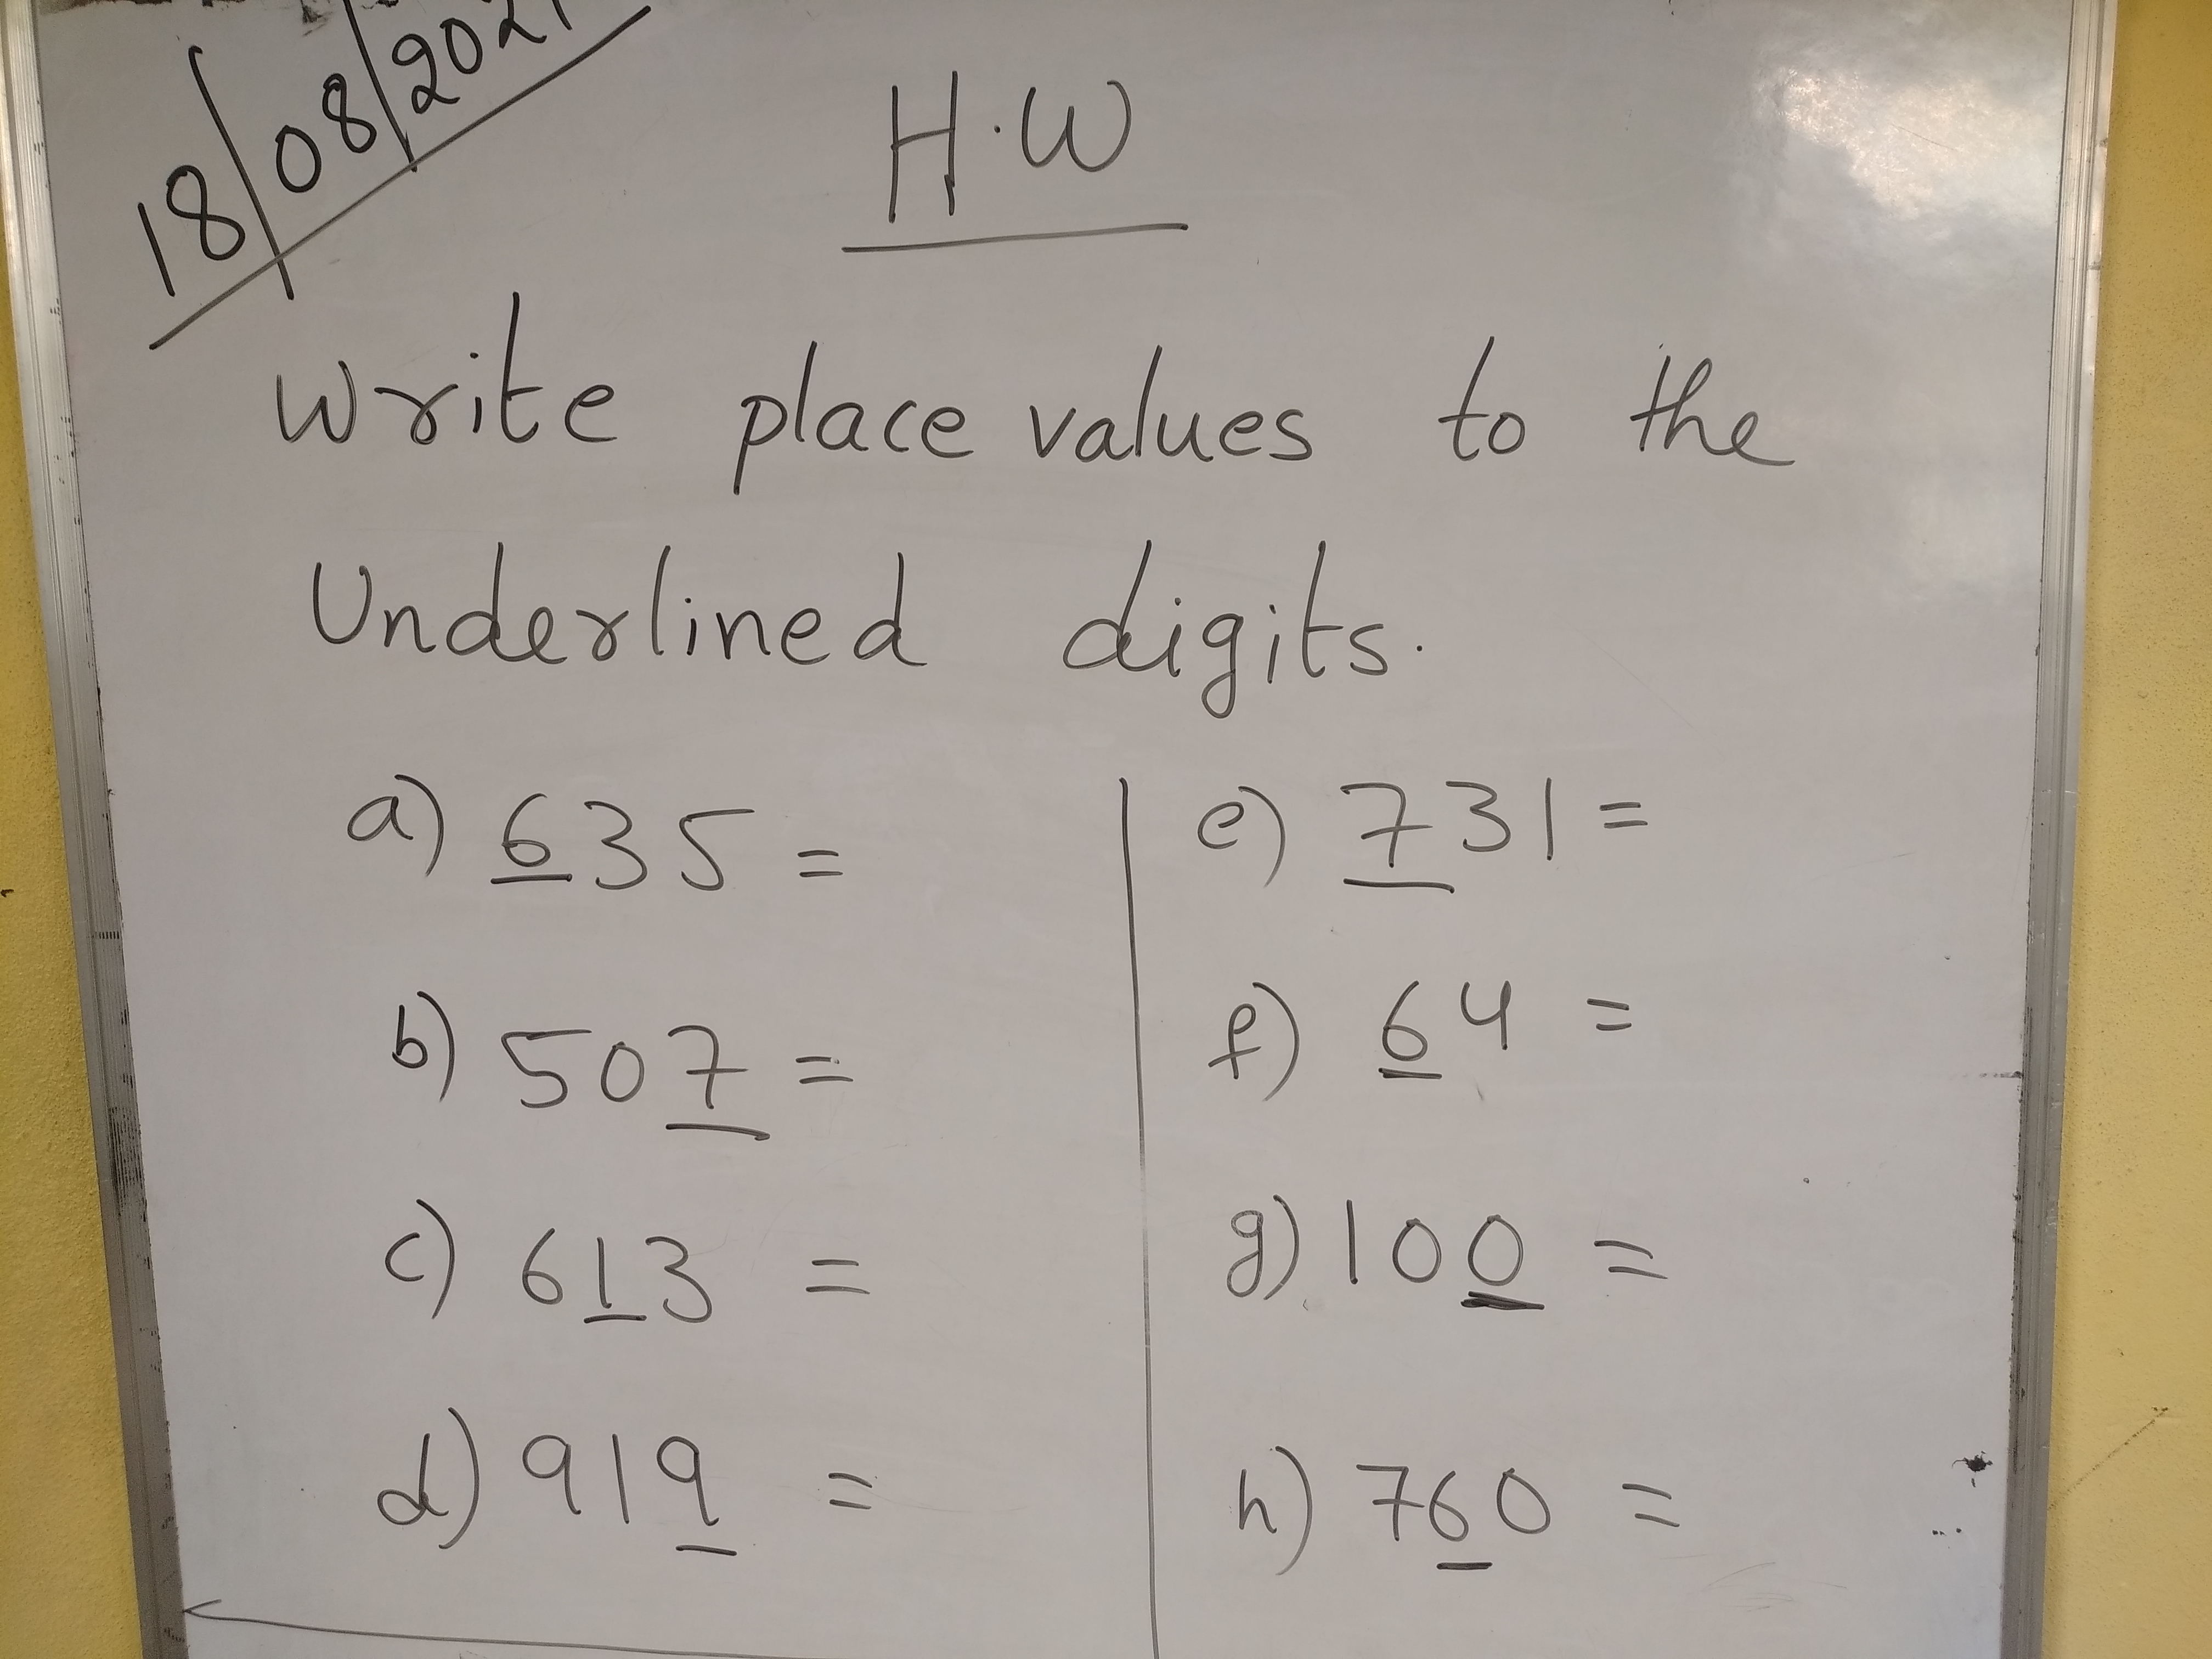 18/08/2021
H.W
Write place values to the
Underlined digits.
a) 635 =
b) 507 =
c) 613 =
d) 919 =
e) 731 =
f) 64 =
g) 100 =
h) 760 =